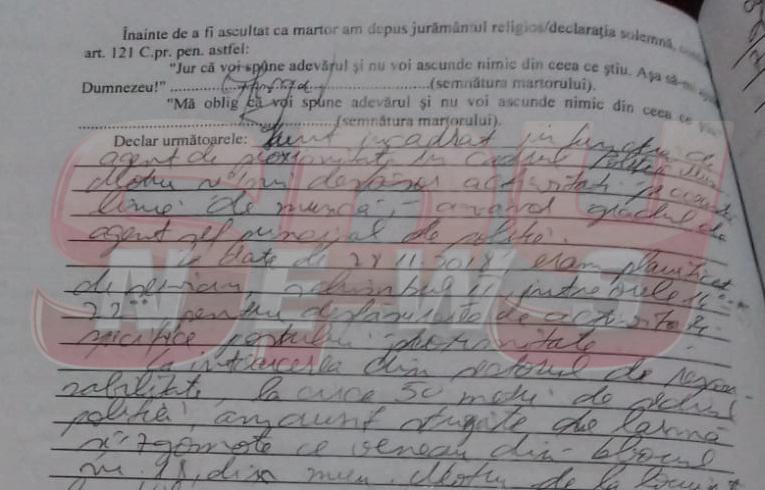 Înainte de a fi ascultat ca martor am depus jurământul religios/declarația solemnă,
art. 121 C.pr. pen. astfel:
"Jur că voi spune adevărul și nu voi ascunde nimic din ceea ce știu. Așa să-mi
Dumnezeu!" (semnătura martorului).
"Mă oblig că voi spune adevărul și nu voi ascunde nimic din ceea ce știu
(semnătura martorului).
Declar următoarele: Sunt încadrat în funcția de
agent de proximitate în cadrul Poliției
Motru desfășor activități pe
linie de muncă, având gradul de
agent șef principal de poliție.
În data de 28.11.2018, eram planificat
de serviciu, schimbul II, între orele
22⁰⁰, pentru desfășurarea de activități
specifice postului proximitate.
La întoarcerea din sectorul de respon-
sabilitate, la circa 50 metri de sediul
poliției, am auzit strigăte de larmă
zgomote ce veneau din blocul
nr. din mun. Motru de la
SPY
NEWS